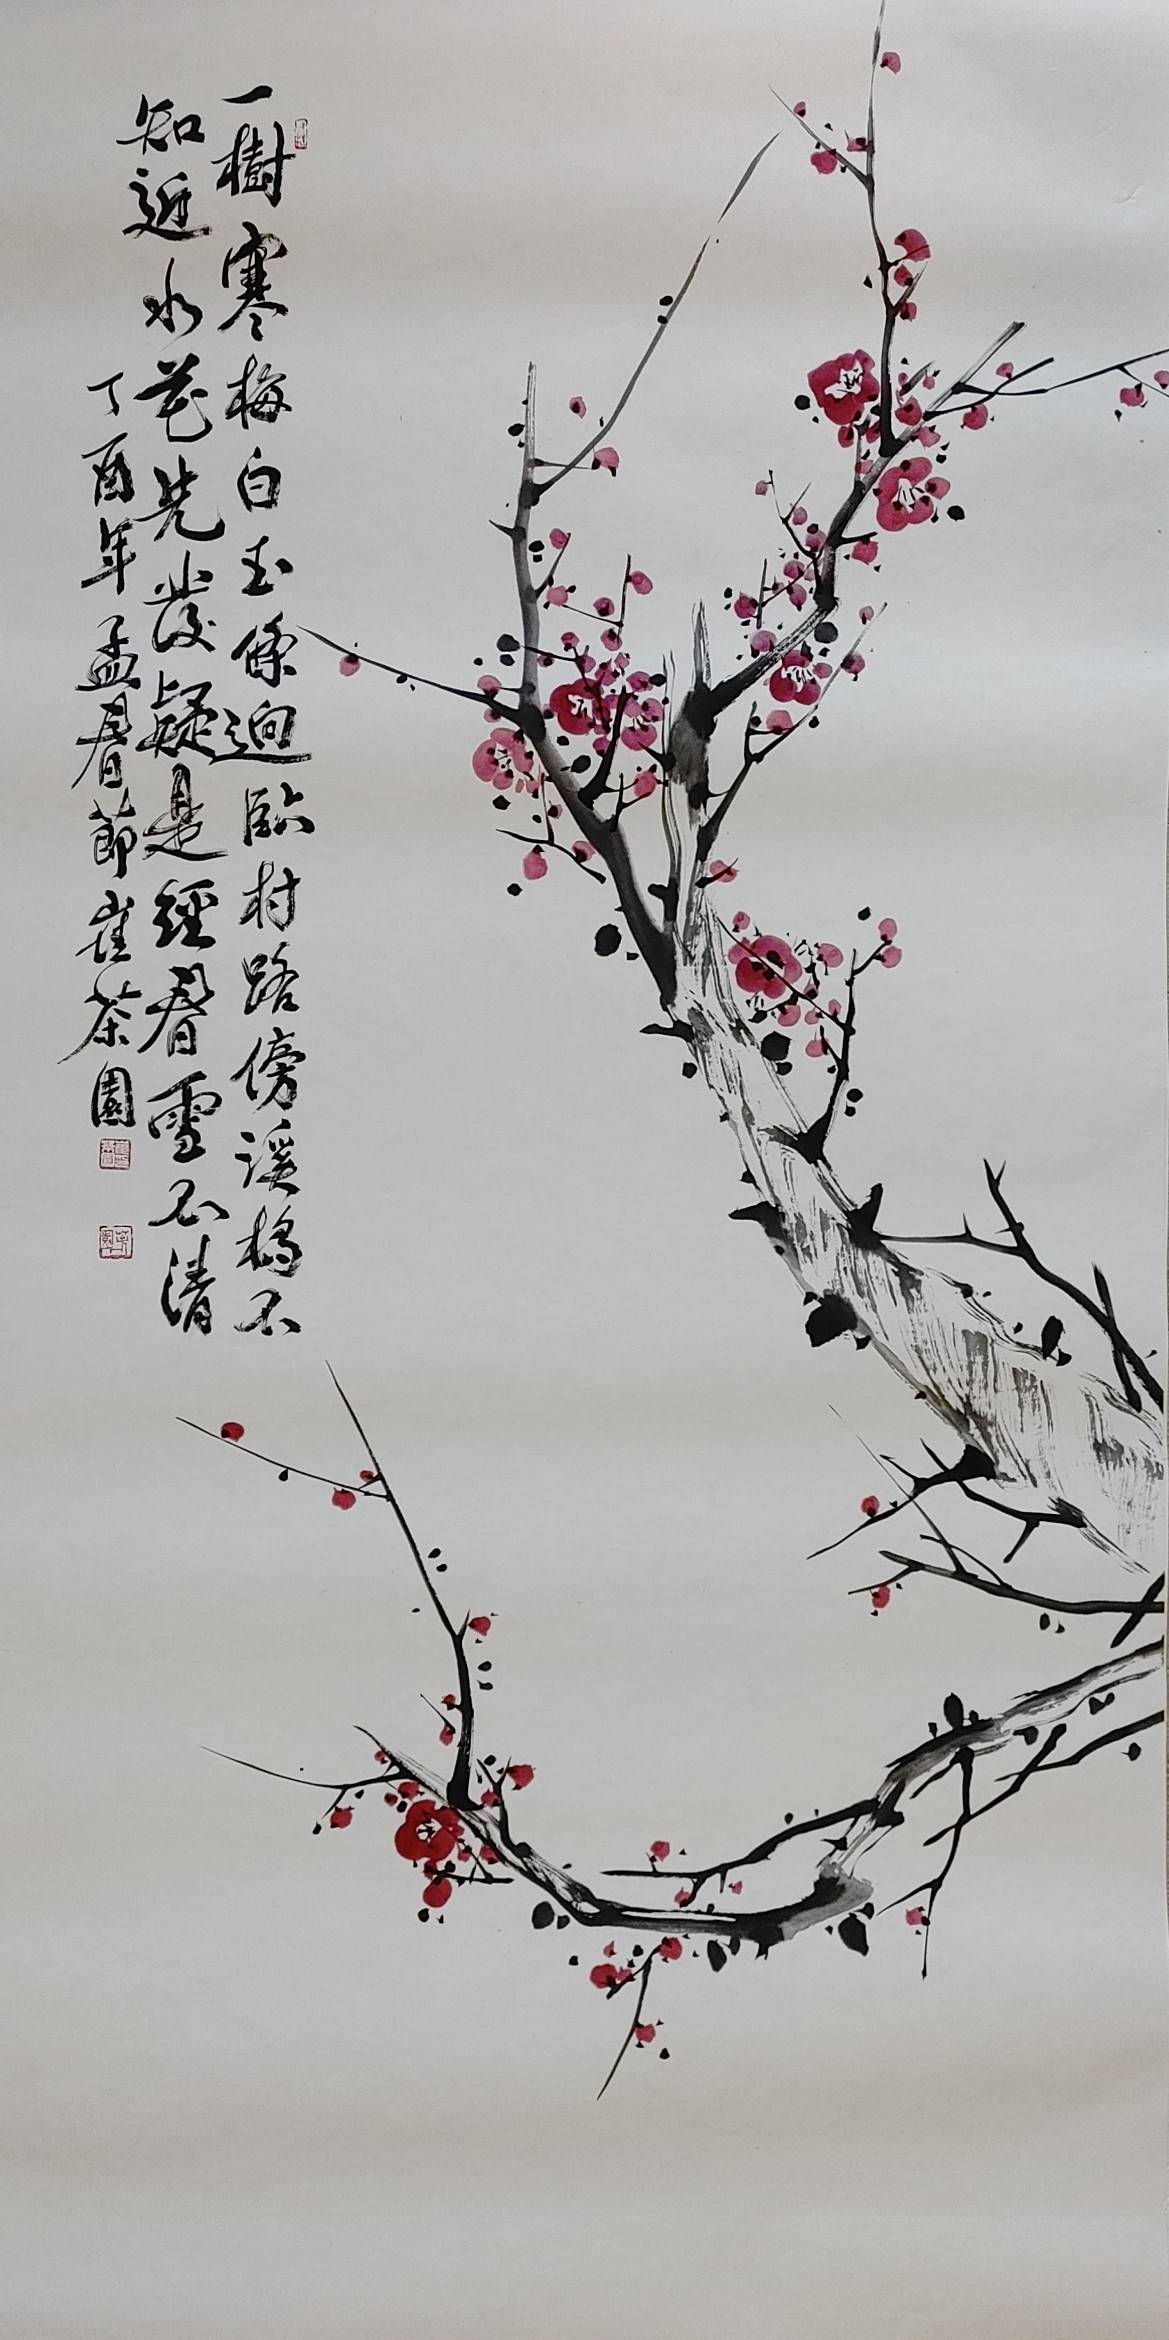 一樹寒梅白玉條迥臨村路傍溪橋不
知近水花先發疑是經春雪不清
丁酉年孟春節崔茶園